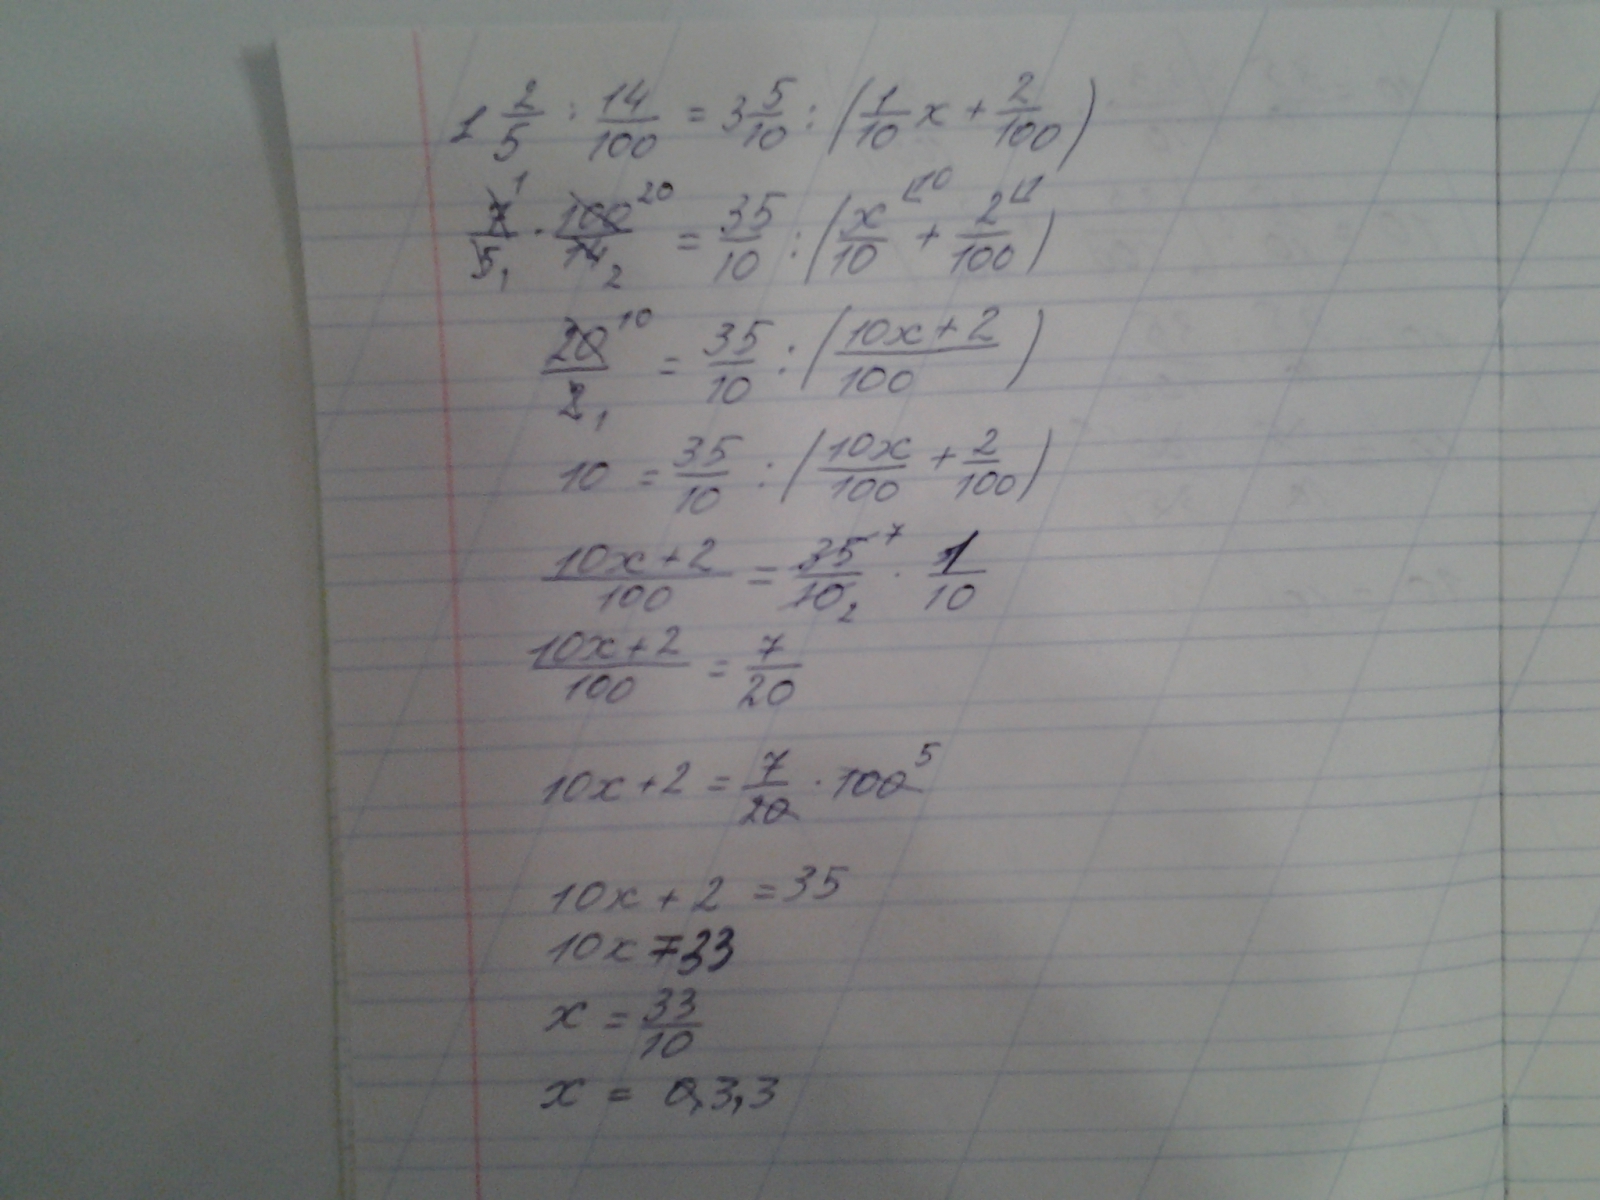 1 2/5 : 14/100 = 3 5/10 : (1/10 x + 2/100)
7/5 1 1 · 100/14 20 2 = 35/10 : (x/10 10 + 2/100 1)
20/2 10 1 = 35/10 : (10x+2/100)
10 = 35/10 : (10x/100 + 2/100)
10x+2/100 = 35/10 7 2 · 1/10
10x+2/100 = 7/20
10x+2 = 7/20 · 100 5
10x + 2 = 35
10x = 33
x = 33/10
x = 0,3,3